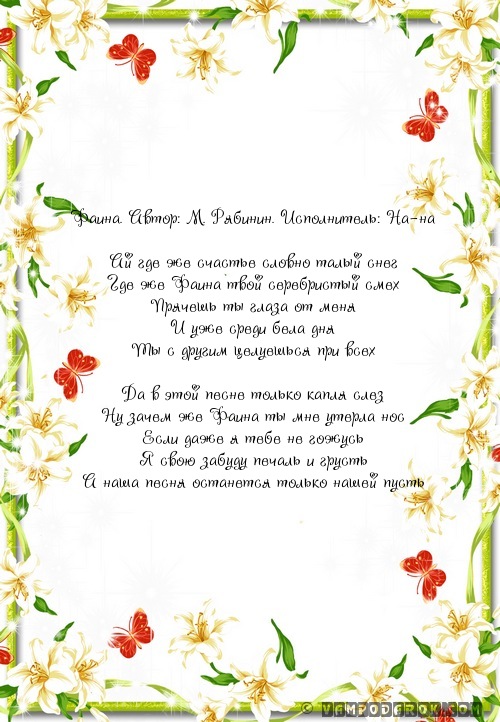 Фаина. Автор: М. Рябинин. Исполнитель: На-на
Ай где же счастье словно талый снег
Где же Фаина твой серебристый смех
Прячешь ты глаза от меня
И уже среди бела дня
Ты с другим целуешься при всех
Да в этой песне только капля слез
Ну зачем же Фаина ты мне утерла нос
Если даже я тебе не гожусь
Я свою забуду печаль и грусть
А наша песня останется только нашей пусть
© VAMPODAROK.COM